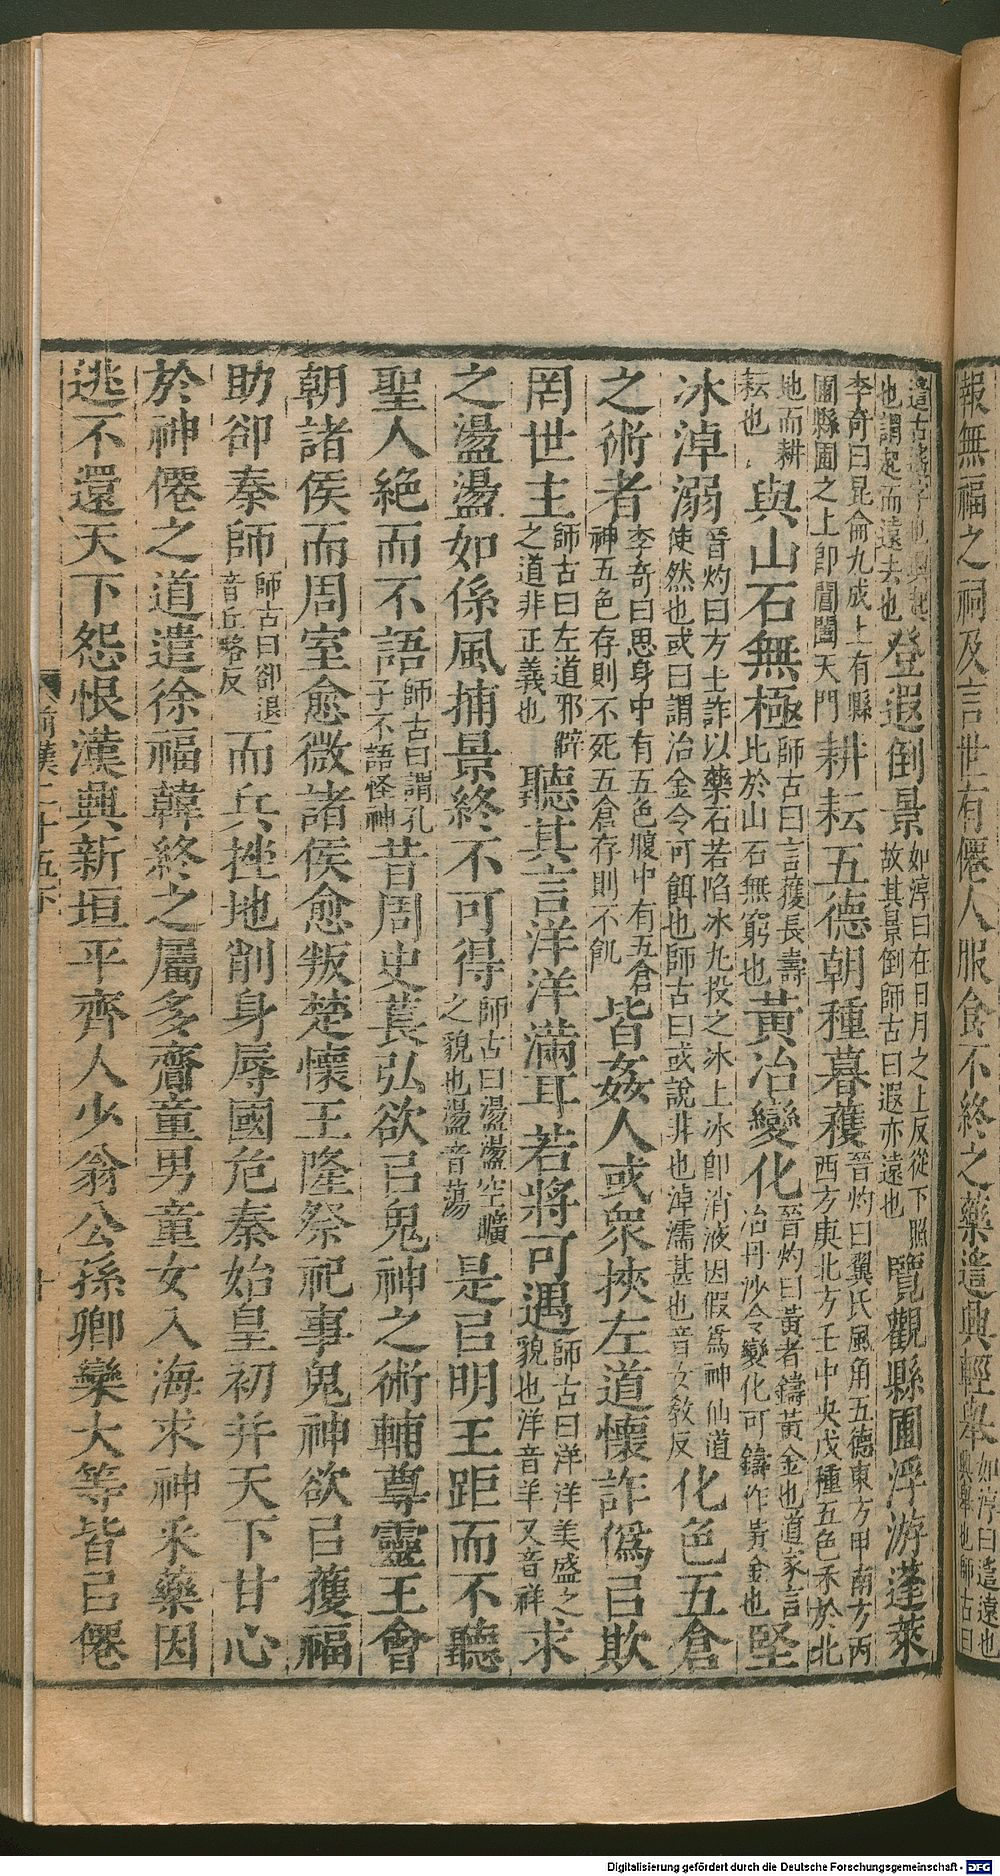 報無福之祠及言世有僊人服食不終之藥遙興輕舉如淳曰遙遠也興舉也師古曰
遙古遙字也興起也謂起而遠去也登遐倒景如淳曰在日月之上反從下照故其景倒師古曰遐亦遠也覽觀縣圃浮游蓬萊
李奇曰昆侖九成上有縣圃縣圃之上即閶闔天門耕耘五德朝種暮穫晉灼曰翼氏風角五德東方甲南方丙西方庚北方壬中央戊種五色禾於北
地而耕耘也與山石無極師古曰言獲長壽比於山石無窮也黃冶變化晉灼曰黃者鑄黃金也道家言冶丹沙令變化可鑄作黃金也堅
冰淖溺晉灼曰方士詐以藥石若陷冰丸投之冰上冰即消液因假爲神仙道使然也或曰謂冶金令可餌也師古曰或說非也淖濡甚也音女敎反化色五倉
之術者李奇曰思身中有五色腹中有五倉神五色存則不死五倉存則不飢皆姦人或衆挾左道懷詐僞㠯欺
罔世主師古曰左道邪僻之道非正義也聽其言洋洋滿耳若將可遇師古曰洋洋美盛之貌也洋音羊又音祥求
之盪盪如係風捕景終不可得師古曰盪盪空曠之貌也盪音蕩是㠯明王距而不聽
聖人絶而不語師古曰謂孔子不語怪神昔周史萇弘欲㠯鬼神之術輔尊靈王會
朝諸侯而周室愈微諸侯愈叛楚懷王隆祭祀事鬼神欲㠯獲福
助卻秦師師古曰卻退音丘略反而兵挫地削身辱國危秦始皇初并天下甘心
於神僊之道遣徐福韓終之屬多齎童男童女入海求神采藥因
逃不還天下怨恨漢興新垣平齊人少翁公孫卿欒大等皆㠯僊
前漢二十五下
十
Digitalisierung gefördert durch die Deutsche Forschungsgemeinschaft - DFG